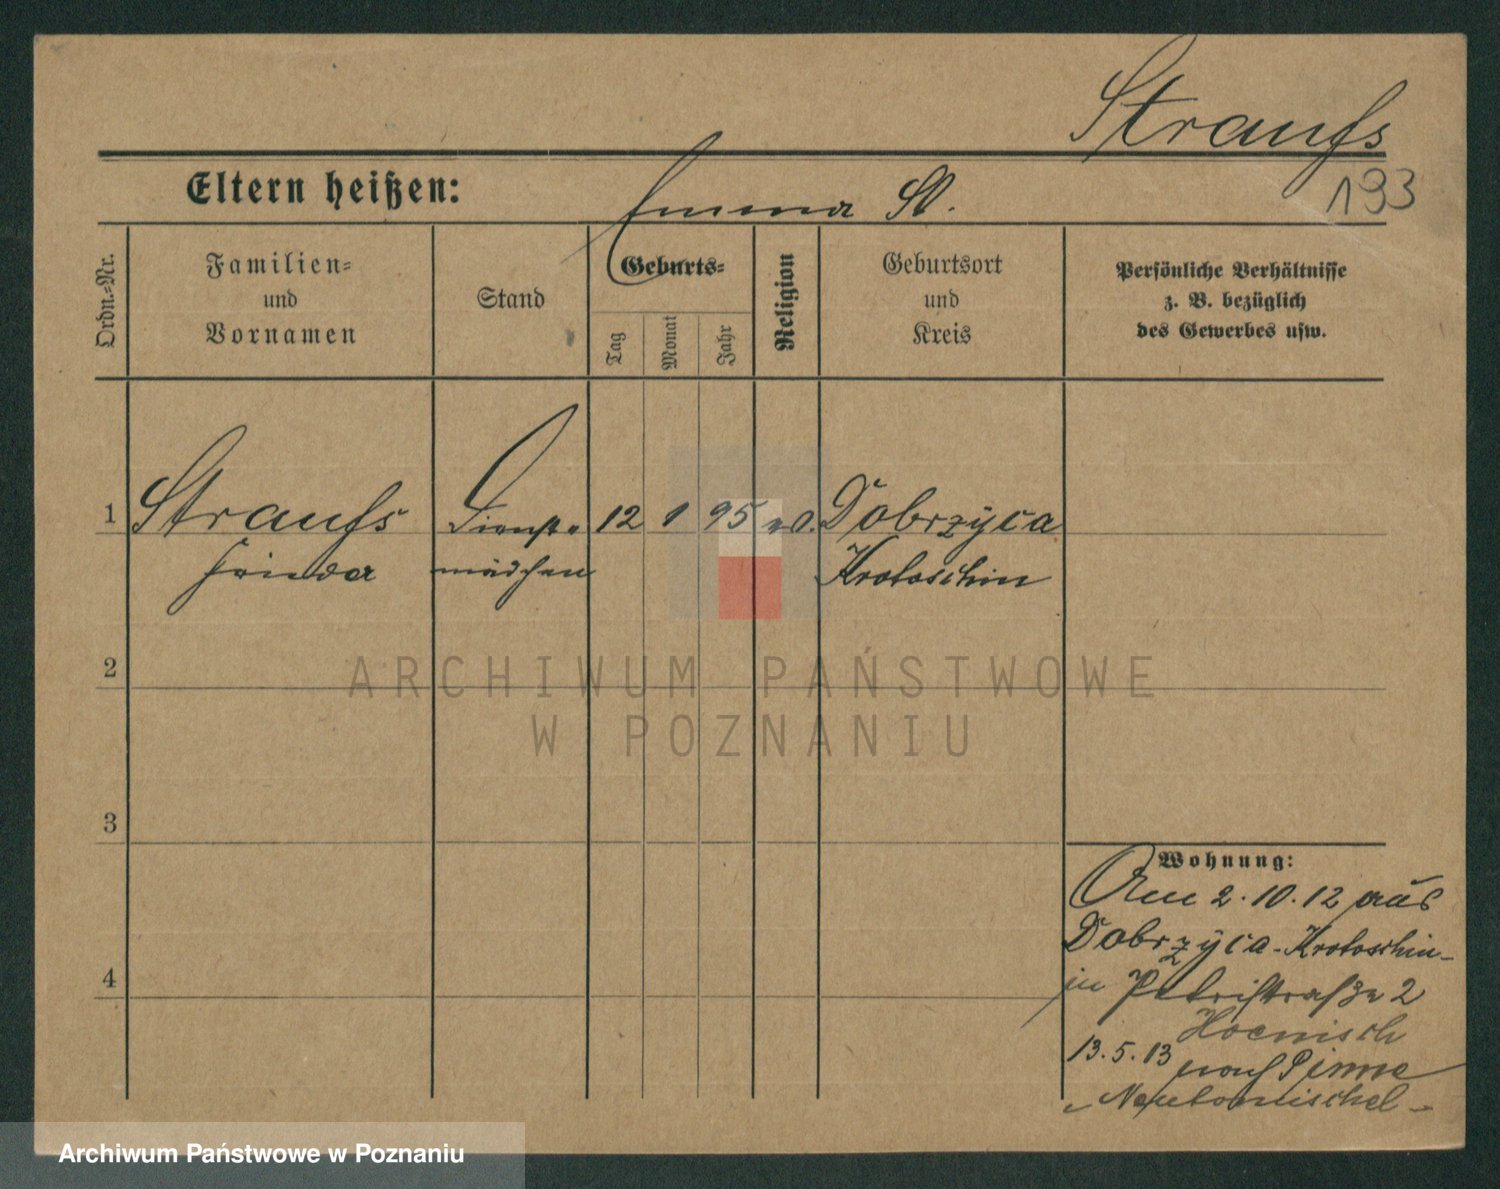 Straufs
193
Eltern heißen:
Emma St.
Ordn.=Nr.
Familien=
und
Vornamen
Stand
Geburts=
Tag
Monat
Jahr
Religion
Geburtsort
und
Kreis
Persönliche Verhältnisse
z. B. bezüglich
des Gewerbes usw.
1 Straufs Dienst= 12 1 95 Dobrzyca
Frieda mädchen Krotoschin
2
3
4
Wohnung:
Am 2.10.12 aus
Dobrzyca-Krotoschin-
in Petristraße 2
Hoenisch
13.5.13 nach Pinne
Neutomischel
ARCHIWUM PAŃSTWOWE
W POZNANIU
Archiwum Państwowe w Poznaniu